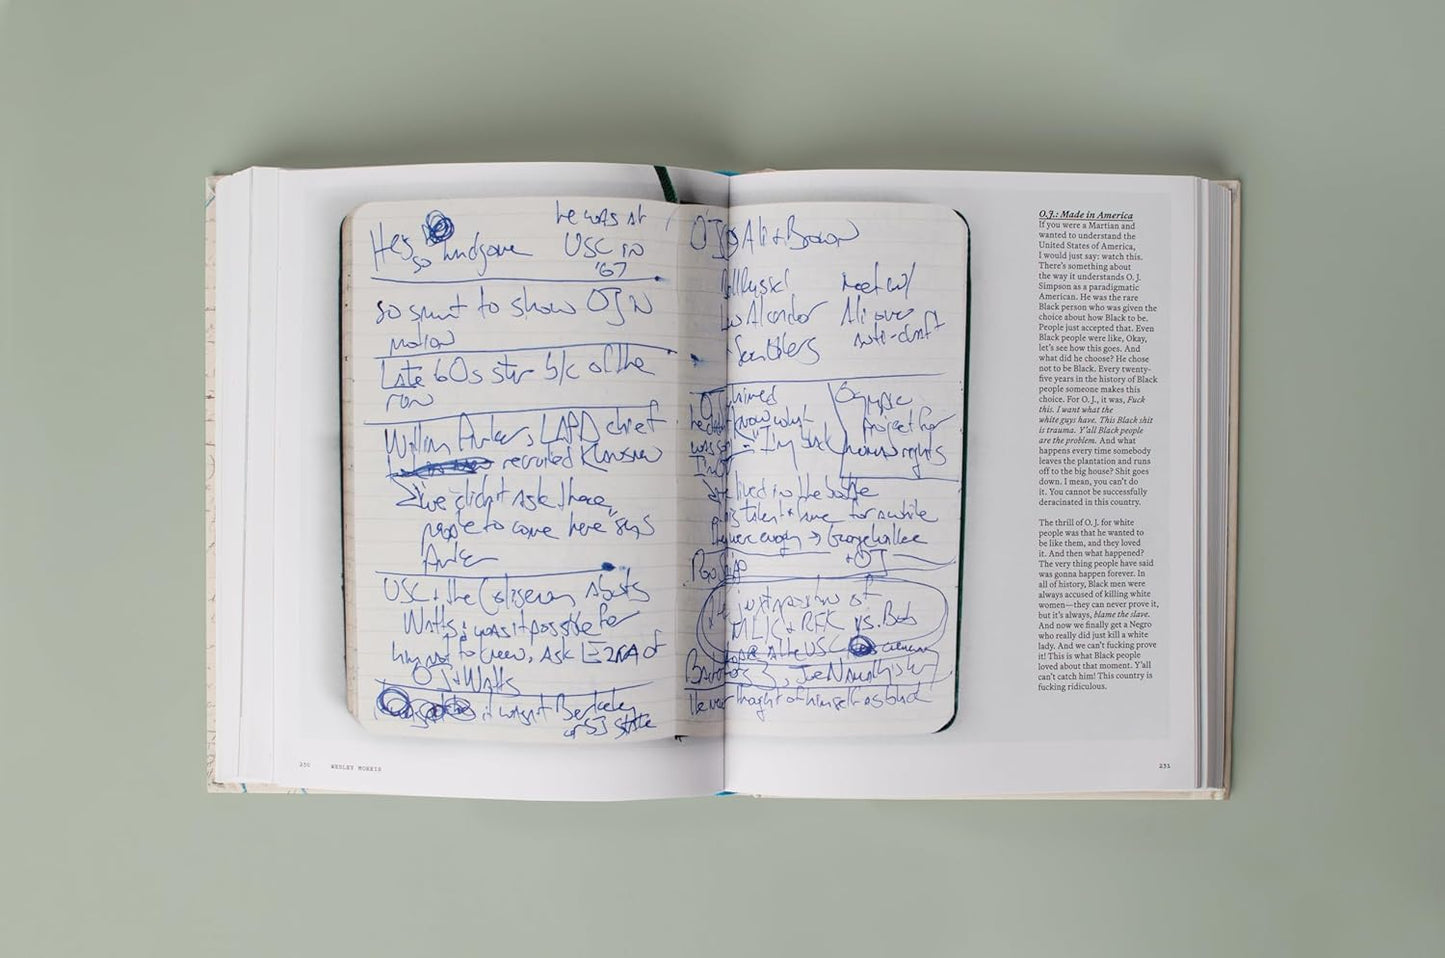 He's so handsome
he was at
USC IN
'67
so smart to show OJ IN
motion
Late 60s star b/c of the
row
William Parker, LAPD chief
recruited Klansmen
"we didn't ask these
people to come here" says
Parker
USC + the Coliseum abuts
Watts; was it possible for
him not to know, Ask EZRA of
OJ + Watts
it wasn't Berkeley
or SJ State
OJ Ali + Brown
Bill Russel
Lew Alcindor
meet w/
Ali over
anti-draft
Olympic
project for
human rights
he didn't know what
was
"I'm black
lived in the
his talent + fame for a while
+ OJ
juxtaposition of
MLK + RFK vs. Bob
USC
Joe Namath
He never thought of himself as black
O.J.: Made in America
If you were a Martian and
wanted to understand the
United States of America,
I would just say: watch this.
There's something about
the way it understands O. J.
Simpson as a paradigmatic
American. He was the rare
Black person who was given the
choice about how Black to be.
People just accepted that. Even
Black people were like, Okay,
let's see how this goes. And
what did he choose? He chose
not to be Black. Every twenty-
five years in the history of Black
people someone makes this
choice. For O. J., it was, Fuck
this. I want what the
white guys have. This Black shit
is trauma. Y'all Black people
are the problem. And what
happens every time somebody
leaves the plantation and runs
off to the big house? Shit goes
down. I mean, you can't do
it. You cannot be successfully
deracinated in this country.
The thrill of O. J. for white
people was that he wanted to
be like them, and they loved
it. And then what happened?
The very thing people have said
was gonna happen forever. In
all of history, Black men were
always accused of killing white
women—they can never prove it,
but it's always, blame the slave.
And now we finally get a Negro
who really did just kill a white
lady. And we can't fucking prove
it! This is what Black people
loved about that moment. Y'all
can't catch him! This country is
fucking ridiculous.
230 WESLEY MORRIS
231